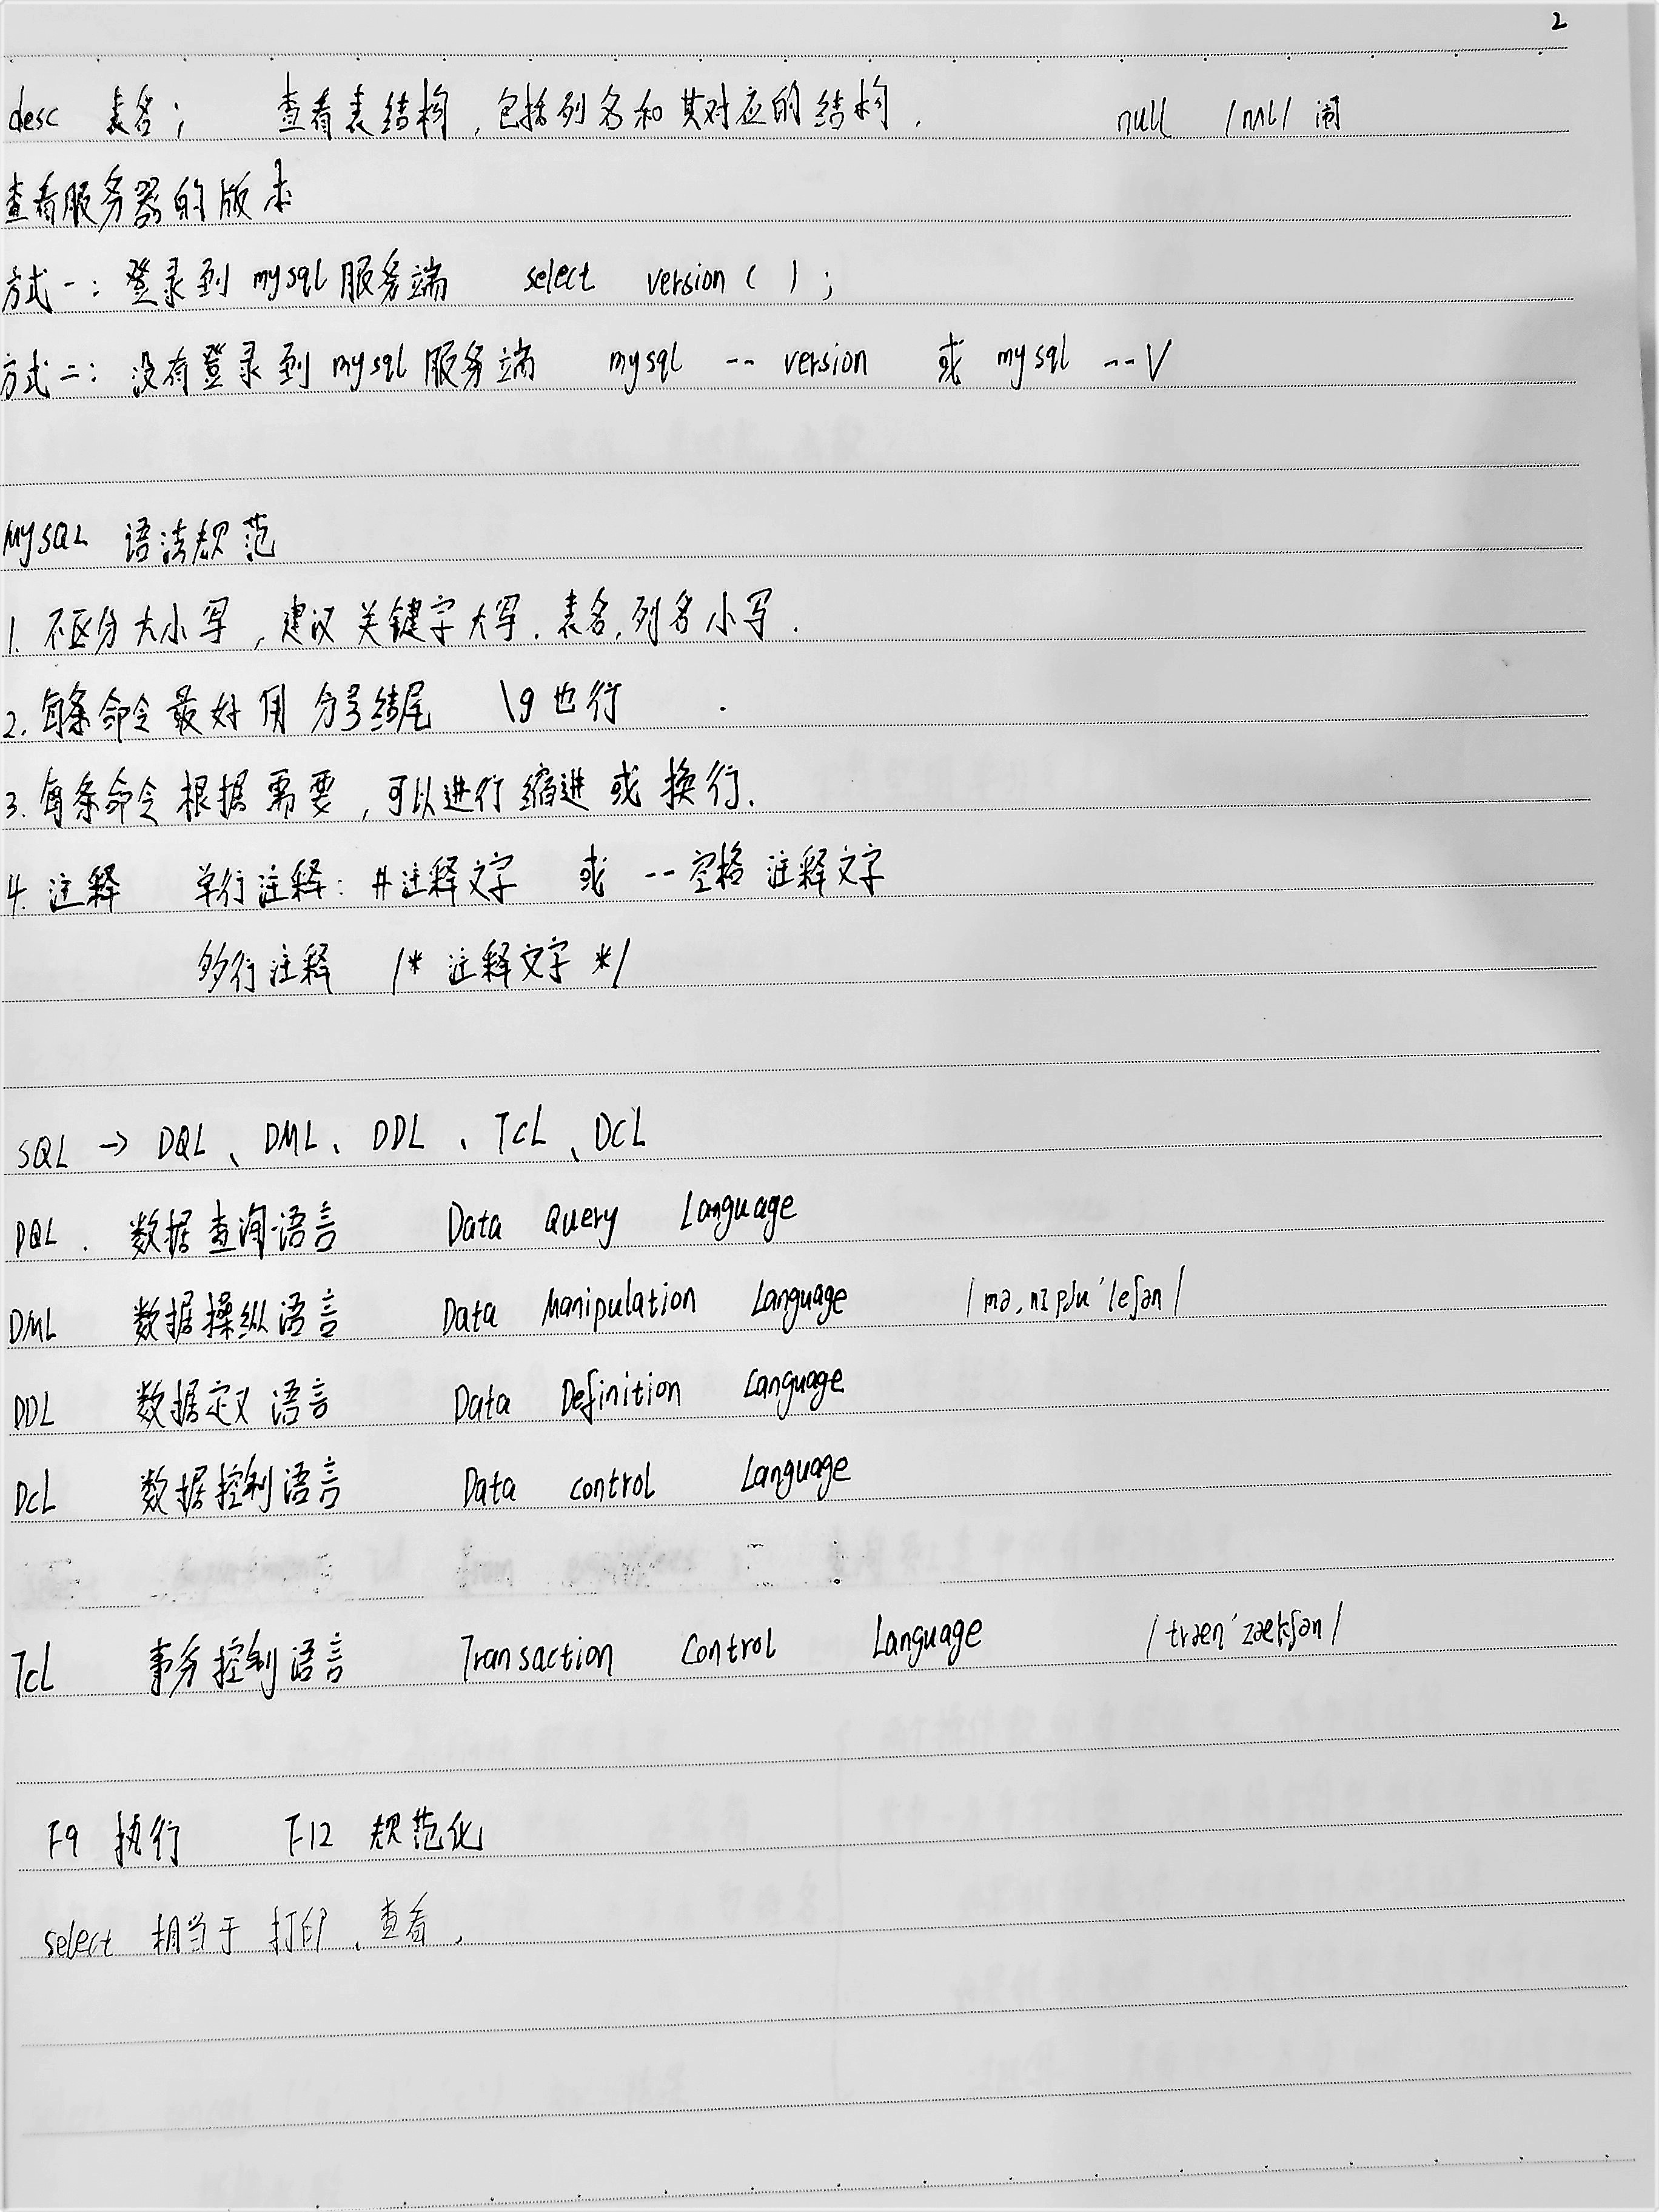 2
desc 表名; 查看表结构,包括列名和其对应的结构. null /nʌl/ 闹
查看服务器的版本
方式一: 登录到 mysql 服务端 select version ( ) ;
方式二: 没有登录到 mysql 服务端 mysql -- version 或 mysql --V
MySQL 语法规范
1. 不区分大小写, 建议关键字大写. 表名, 列名小写.
2. 每条命令最好用分号结尾 \g 也行
3. 每条命令根据需要, 可以进行缩进或换行.
4. 注释 单行注释: #注释文字 或 --空格 注释文字
多行注释 /* 注释文字 */
SQL → DQL、DML、DDL、TCL、DCL
DQL. 数据查询语言 Data Query Language
DML 数据操纵语言 Data Manipulation Language /mə,nɪpJu'leʃən/
DDL 数据定义语言 Data Definition Language
DCL 数据控制语言 Data control Language
TCL 事务控制语言 Transaction Control Language /træn'zækʃən/
F9 执行 F12 规范化
select 相当于 打印、查看.